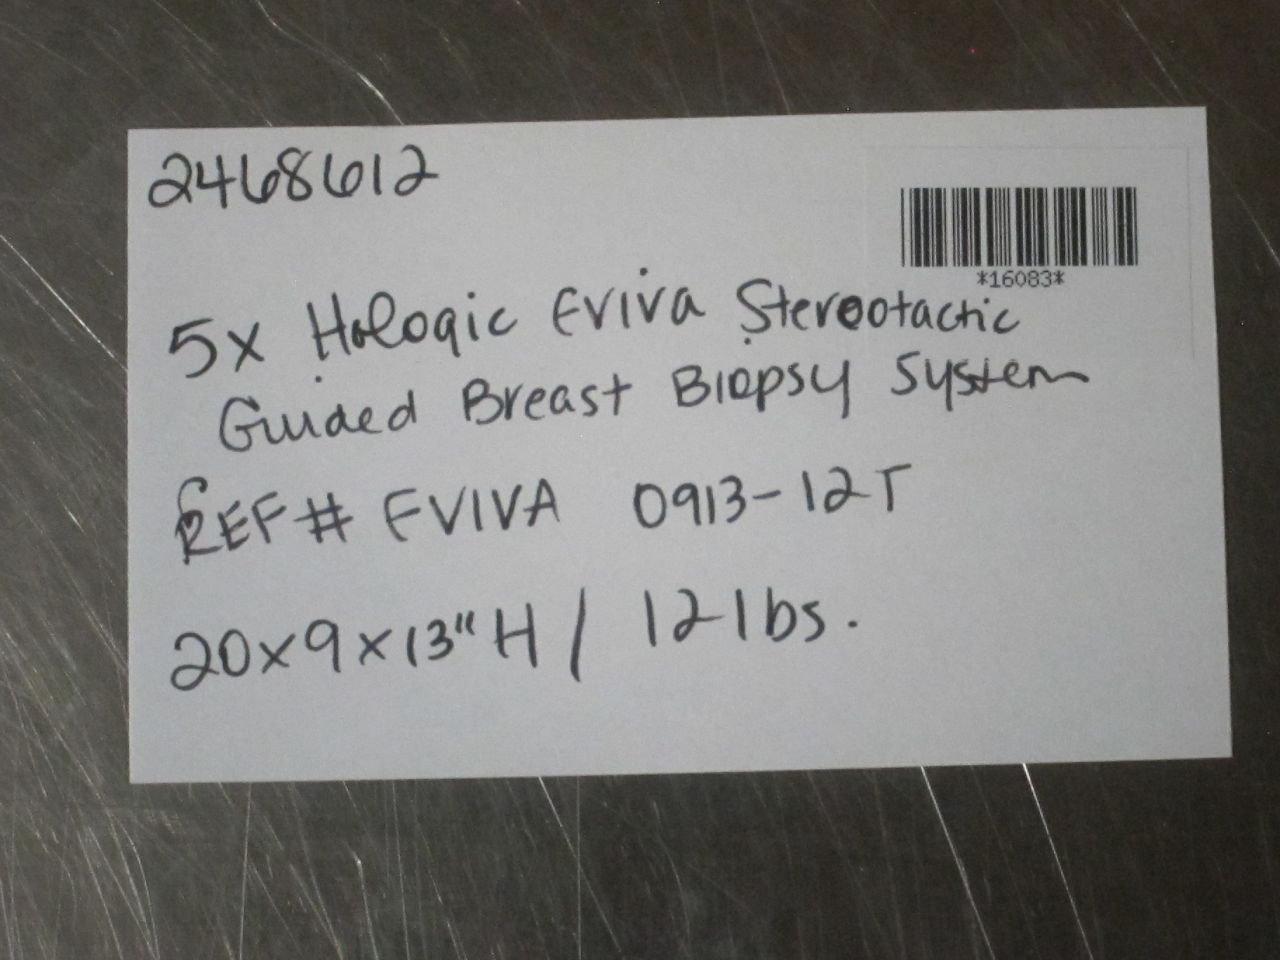 2468612
*16083*
5x Hologic Eviva Stereotactic
Guided Breast Biopsy System
REF# EVIVA 0913-12T
20x9x13"H / 12 lbs.